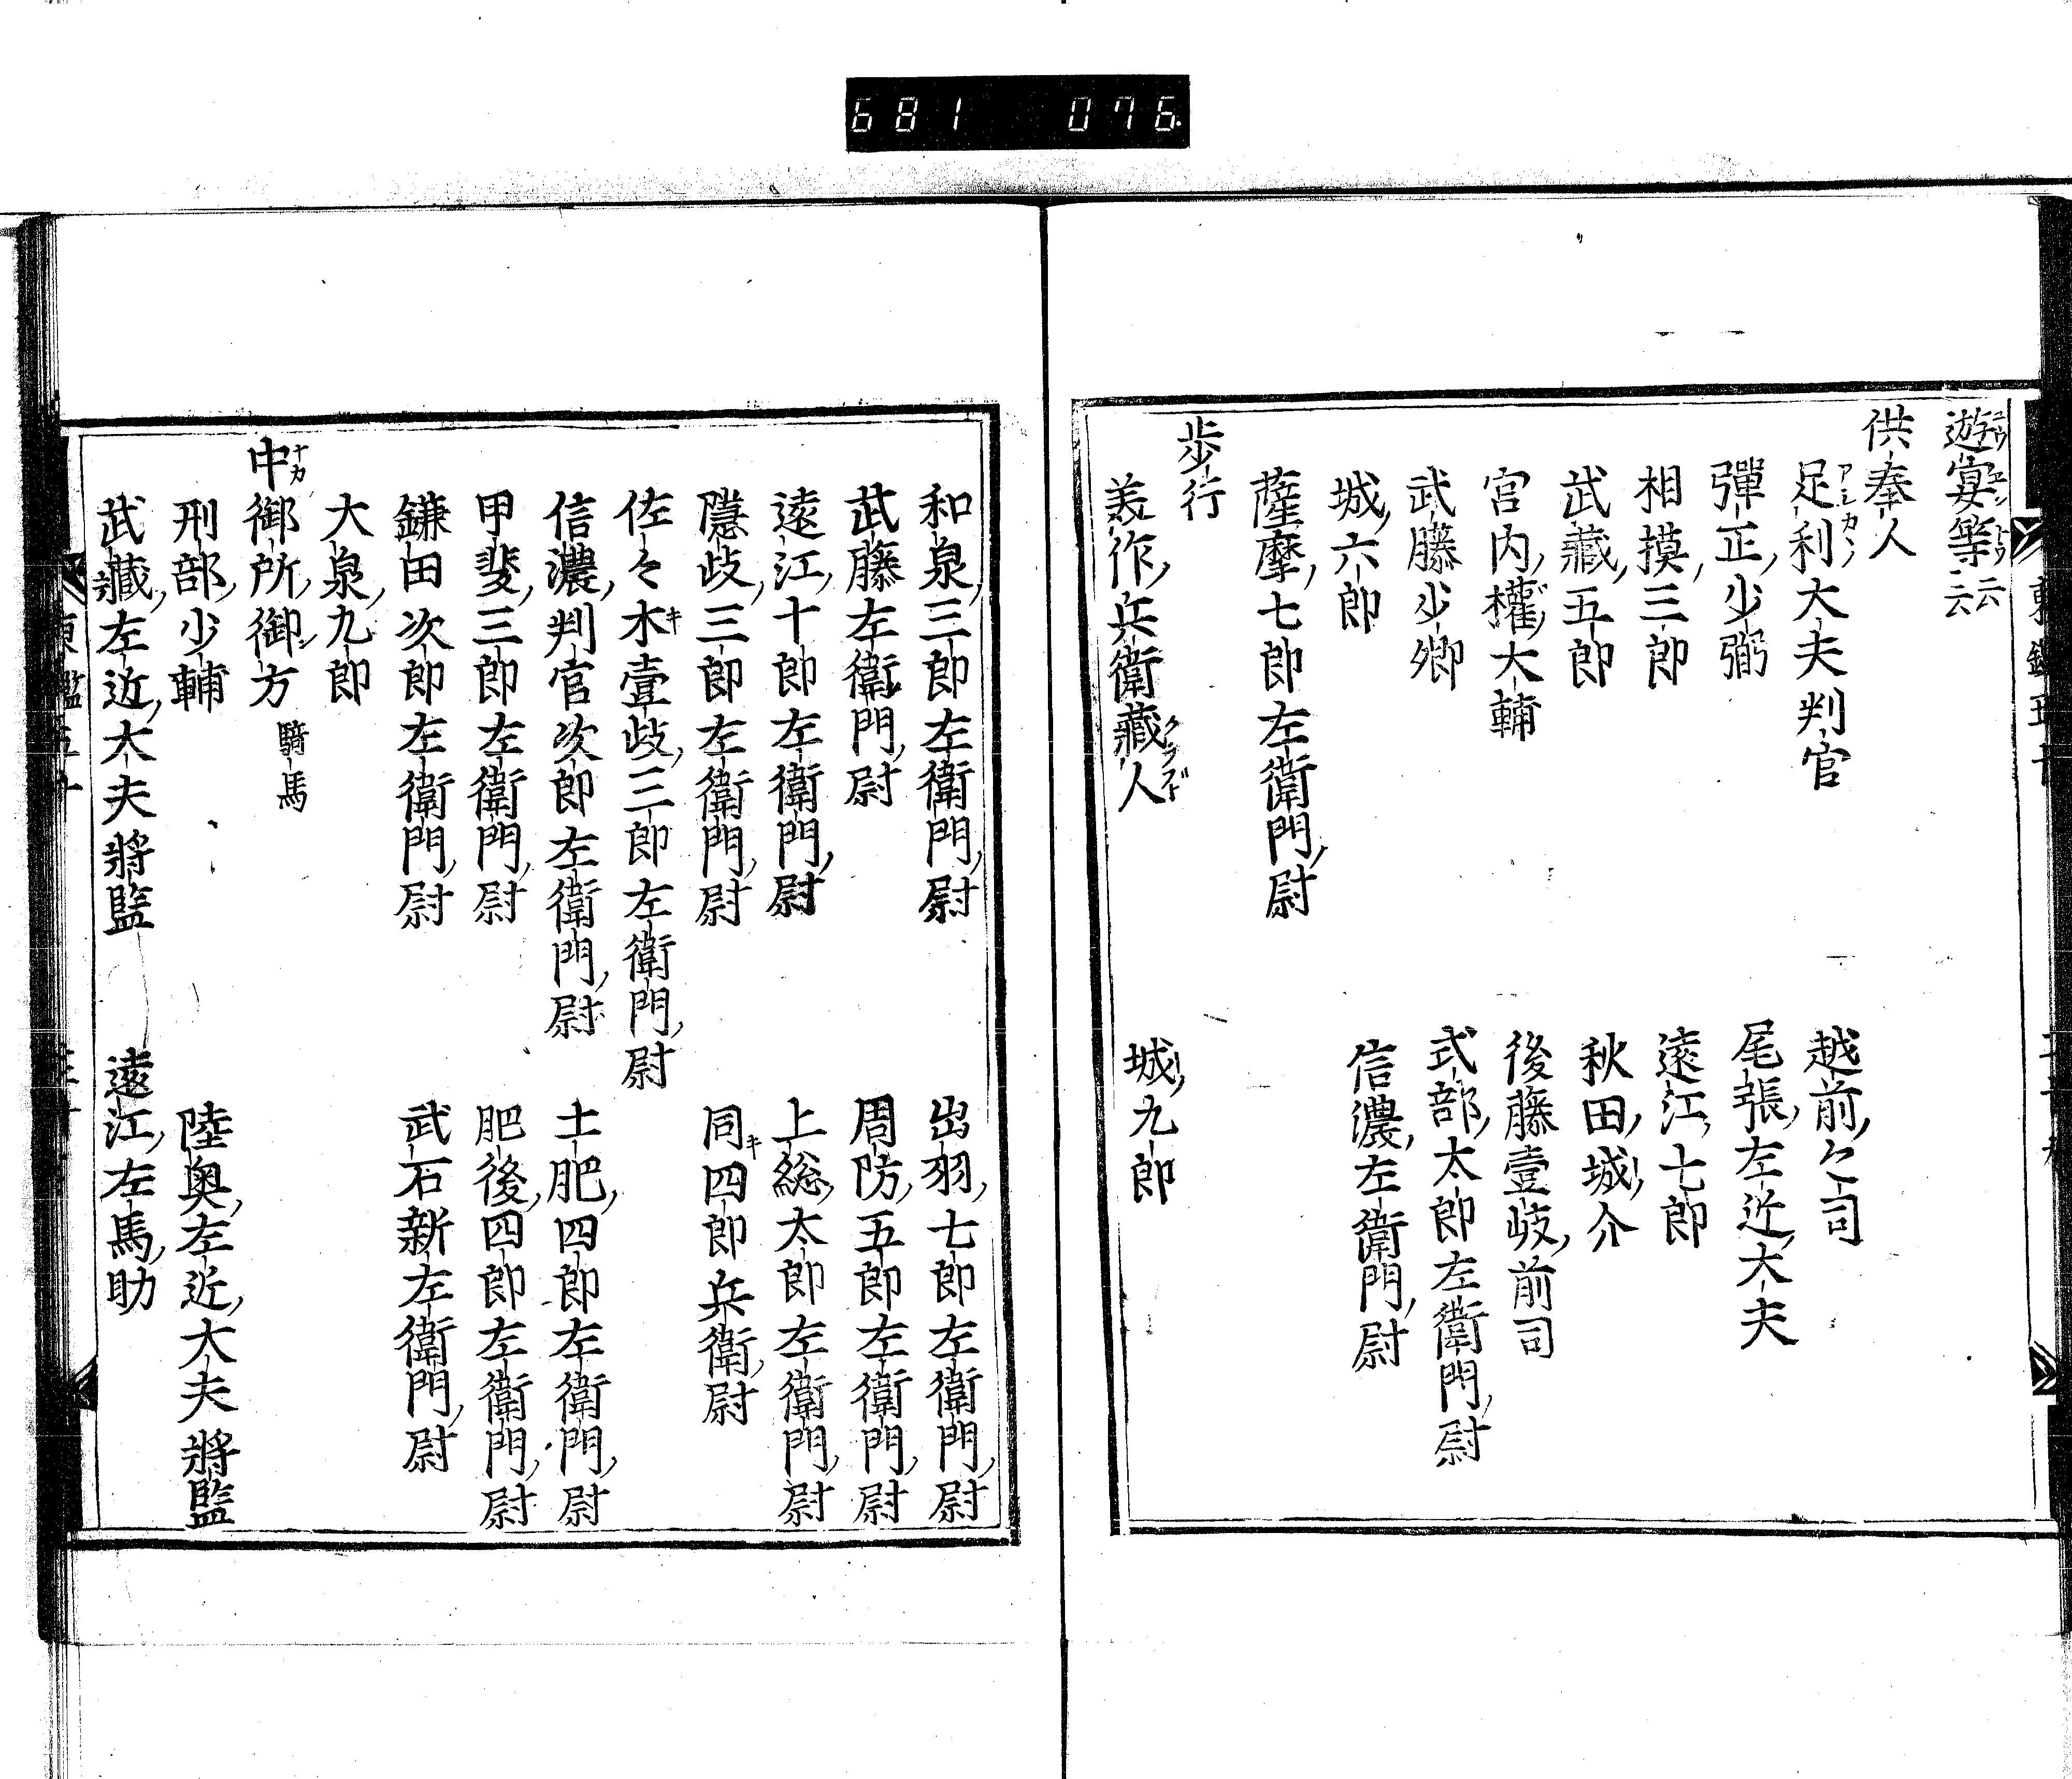 681 076
遊宴等云云
供奉人
足利大夫判官　越前々司
彈正少弼　尾張左近大夫
相摸三郎　遠江七郎
武藏五郎　秋田城介
宮内權大輔　後藤壹岐前司
武藤少卿　式部太郎左衛門尉
城六郎　信濃左衛門尉
薩摩七郎左衛門尉
歩行
美作兵衛藏人　城九郎
和泉三郎左衛門尉　出羽七郎左衛門尉
武藤左衛門尉　周防五郎左衛門尉
遠江十郎左衛門尉　上総太郎左衛門尉
隱歧三郎左衛門尉　同四郎兵衛尉
佐々木壹歧三郎左衛門尉
信濃判官次郎左衛門尉　土肥四郎左衛門尉
甲斐三郎左衛門尉　肥後四郎左衛門尉
鎌田次郎左衛門尉　武石新左衛門尉
大泉九郎
中御所御方 騎馬
刑部少輔　陸奥左近大夫將監
武藏左近大夫將監　遠江左馬助